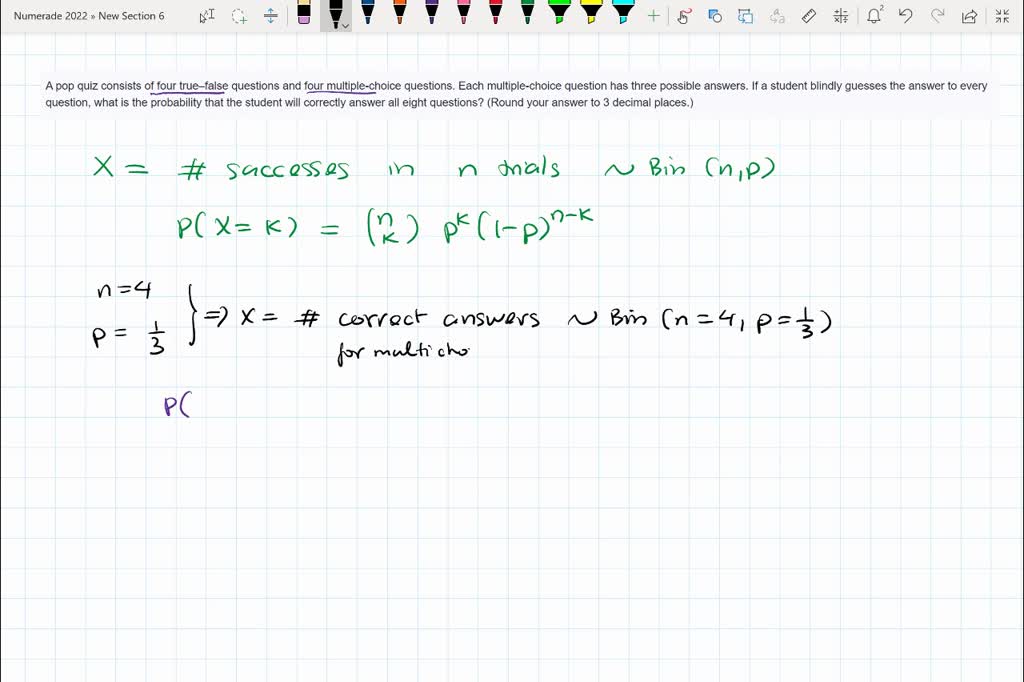 Numerade 2022 » New Section 6
2
A pop quiz consists of four true–false questions and four multiple-choice questions. Each multiple-choice question has three possible answers. If a student blindly guesses the answer to every
question, what is the probability that the student will correctly answer all eight questions? (Round your answer to 3 decimal places.)
X = # successes in n trials ~ Bin (n,p)
P(X=K) = (n K) p^K (1-p)^n-K
n=4
p= 1/3 } => X = # correct answers ~ Bin (n=4, p=1/3)
for multi cho
P(